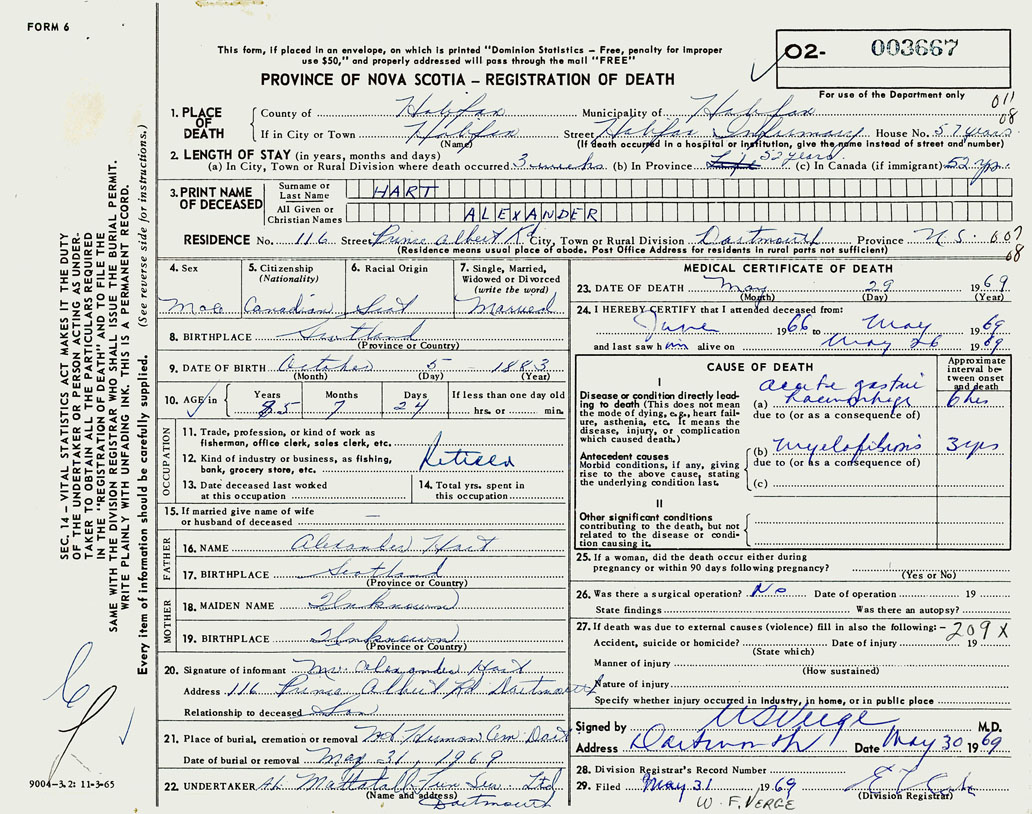 FORM 6
This form, if placed in an envelope, on which is printed "Dominion Statistics – Free, penalty for improper
use $50," and properly addressed will pass through the mail "FREE"
PROVINCE OF NOVA SCOTIA – REGISTRATION OF DEATH
O2- 003667
For use of the Department only
011
08
1. PLACE OF DEATH
County of Halifax Municipality of Halifax
If in City or Town Halifax Street Halifax Infirmary House No. 57 years
(Name) (If death occurred in a hospital or institution, give the name instead of street and number)
2. LENGTH OF STAY (in years, months and days)
(a) In City, Town or Rural Division where death occurred 3 weeks (b) In Province Life 52 years (c) In Canada (if immigrant) 52 yrs.
3. PRINT NAME OF DECEASED
Surname or Last Name HART
All Given or Christian Names ALEXANDER
RESIDENCE No. 116 Street Prince Albert Rd City, Town or Rural Division Dartmouth Province N.S. 607
(Residence means usual place of abode. Post Office Address for residents in rural parts not sufficient)
08
4. Sex
5. Citizenship (Nationality) Canadian
6. Racial Origin Scot
7. Single, Married, Widowed or Divorced (write the word) Married
8. BIRTHPLACE Scotland
(Province or Country)
9. DATE OF BIRTH October 5 1883
(Month) (Day) (Year)
10. AGE in Years 85 Months 7 Days 24 If less than one day old
hrs. or min.
OCCUPATION
11. Trade, profession, or kind of work as
fisherman, office clerk, sales clerk, etc.
12. Kind of industry or business, as fishing,
bank, grocery store, etc. Retired
13. Date deceased last worked
at this occupation
14. Total yrs. spent in
this occupation
15. If married give name of wife
or husband of deceased —
FATHER
16. NAME Alexander Hart
17. BIRTHPLACE Scotland
(Province or Country)
MOTHER
18. MAIDEN NAME Unknown
19. BIRTHPLACE Unknown
(Province or Country)
20. Signature of informant Mr. Alexander Hart
Address 116 Prince Albert Rd Dartmouth
Relationship to deceased Son
21. Place of burial, cremation or removal Mt Herman Cem. Dart
Date of burial or removal May 31, 1969
22. UNDERTAKER A.L. Mattatall Fun Ser. Ltd
(Name and address)
Dartmouth
MEDICAL CERTIFICATE OF DEATH
23. DATE OF DEATH May 29 1969
(Month) (Day) (Year)
24. I HEREBY CERTIFY that I attended deceased from:
June 1966 to May 1969
and last saw him alive on May 26 1969
CAUSE OF DEATH
Approximate interval between onset and death
I
Disease or condition directly leading to death (This does not mean
the mode of dying, e.g., heart failure, asthenia, etc. It means the
disease, injury, or complication
which caused death.)
(a) acute gastric haemorrhage 6 hrs
due to (or as a consequence of)
Antecedent causes
Morbid conditions, if any, giving
rise to the above cause, stating
the underlying condition last.
(b) Myelofibrosis 3 yrs
due to (or as a consequence of)
(c)
II
Other significant conditions
contributing to the death, but not
related to the disease or condition causing it.
25. If a woman, did the death occur either during
pregnancy or within 90 days following pregnancy?
(Yes or No)
26. Was there a surgical operation? No Date of operation 19
State findings Was there an autopsy?
27. If death was due to external causes (violence) fill in also the following: – 209X
Accident, suicide or homicide? Date of injury 19
(State which)
Manner of injury
(How sustained)
Nature of injury
Specify whether injury occurred in industry, in home, or in public place
Signed by W S Verge M.D.
Address Dartmouth Date May 30 1969
28. Division Registrar's Record Number
29. Filed May 31 1969
(Division Registrar)
W. F. VERGE
SEC. 14 – VITAL STATISTICS ACT MAKES IT THE DUTY
OF THE UNDERTAKER OR PERSON ACTING AS UNDER-
TAKER TO OBTAIN ALL THE PARTICULARS REQUIRED
IN THE "REGISTRATION OF DEATH" AND TO FILE THE
SAME WITH THE DIVISION REGISTRAR WHO SHALL ISSUE THE BURIAL PERMIT.
WRITE PLAINLY WITH UNFADING INK. THIS IS A PERMANENT RECORD.
Every item of information should be carefully supplied. (See reverse side for instructions.)
9004-3.2: 11-3-65